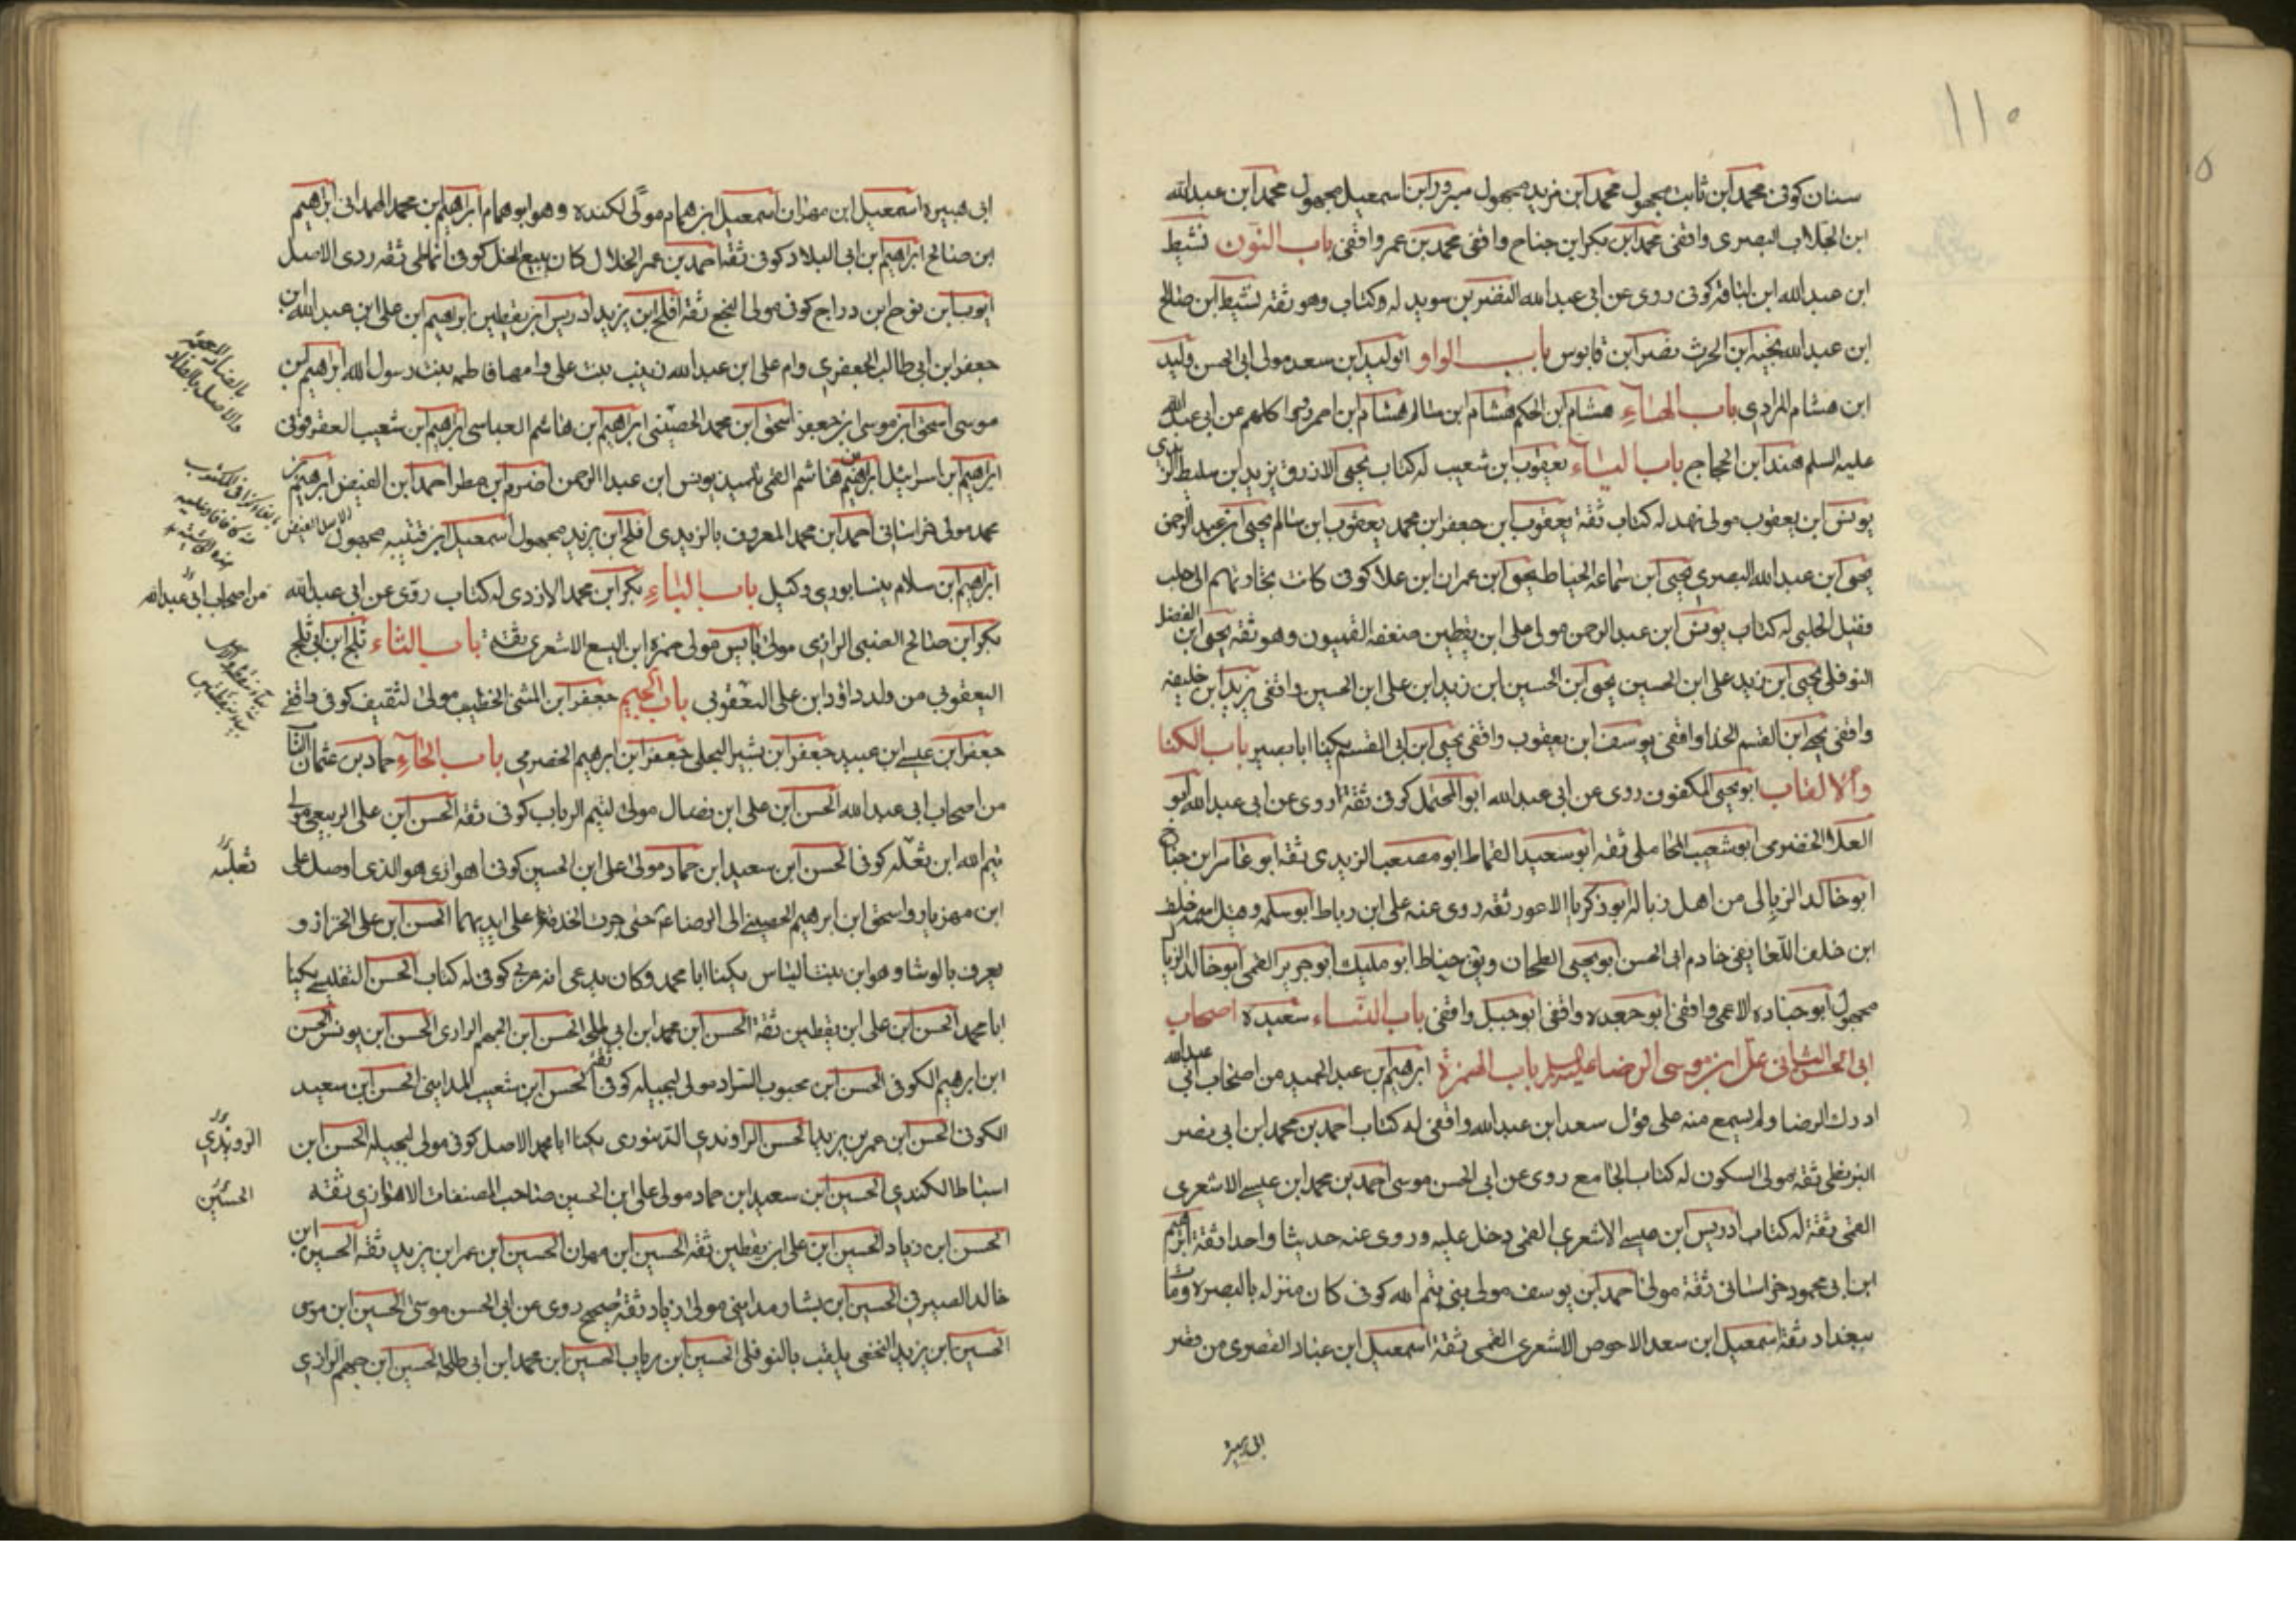 ١١٥
سنان كوفى محمد ابن ثابت مجهول محمد ابن يزيد مجهول ابن اسمعيل مجهول محمد ابن عبد الله
ابن الجلاب البصرى واقفى محمد ابن بكر ابن جناح واقفى محمد بن عمر واقفى باب النون نشيط
ابن عبد الله ابن كوفى روى عن ابى عبد الله النضر بن سويد له كتاب وهو ثقة نشيط ابن صالح
ابن عبد الله ابن الحرث نصر ابن قابوس باب الواو الوليد ابن سعد مولى ابى الحسن وليد
ابن هشام المرادى باب الهاء هشام ابن الحكم هشام ابن سالم هشام ابن احمر رووا كلهم عن ابى عبد الله
عليه السلم هند ابن الحجاج باب الياء يعقوب ابن شعيب له كتاب يحيى الازرق يزيد ابن سليط الزيدى
يونس ابن يعقوب مولى نهد له كتاب ثقة يعقوب ابن جعفر ابن محمد يعقوب ابن سالم يحيى ابن عبد الرحمن
يحيى ابن عبد الله البصرى يحيى ابن سماعة الحناط يحيى ابن عمران ابن علا كوفى كانت تجارتهم الى حلب
فقيل الحلبى له كتاب يونس ابن عبد الرحمن مولى على ابن يقطين ضعفه القميون وهو ثقة يحيى ابن الفضل
النوفلى يحيى ابن زيد على ابن الحسين يحيى ابن الحسين ابن زيد ابن على ابن الحسين واقفى يزيد ابن خليفه
واقفى يحيى ابن القسم الحذا واقفى يوسف ابن يعقوب واقفى يحيى ابن ابى القسم يكنا ابا بصير باب الكنا
والالقاب ابو يحيى المكفوف روى عن ابى عبد الله ابو المحتمل كوفى ثقة روى عن ابى عبد الله ابو
العلا الحضرمى ابو شعيب المحاملى ثقه ابو سعيد القماط ابو مصعب الزيدى ثقة ابو عامر ابن جناح
ابو خالد الزبالى من اهل زباله ابو زكريا الاعور ثقه روى عنه على ابن رباط ابو سلمه وقيل اسمه خلف
ابن خلف خادم ابى الحسن ابو يحيى الطحان حناط ابو مليك ابو جرير القمى ابو خالد
مجهول ابو جناده الاعمى واقفى ابو جعده واقفى ابو جبل واقفى باب النساء سعيدة اصحاب
ابى الحسن الثانى على ابن موسى الرضا عليه السلم باب الهمزة ابرهيم بن عبد الحميد من اصحاب ابى عبد الله
ادرك الرضا ولم يسمع منه على قول سعد ابن عبد الله واقفى له كتاب احمد بن محمد ابن ابى نصر
البزنطى ثقه مولى السكون له كتاب الجامع روى عن ابى الحسن موسى احمد بن محمد ابن عيسى الاشعرى
القمى ثقة له كتاب ادريس ابن عيسى الاشعرى القمى دخل عليه وروى عنه حديثا واحدا ثقة ابرهيم
ابن ابى محمود خراسانى ثقة مولى احمد ابن يوسف مولى بنى تيم الله كوفى كان منزله بالبصرة ومات
ببغداد ثقة اسمعيل ابن سعد الاحوص الاشعرى القمى ثقة اسمعيل ابن عباد القصرى من قصر
ابى هبيرة اسمعيل ابن مهران اسمعيل ابن همام مولى لكنده وهو ابو همام ابراهيم بن محمد الهمدانى ابراهيم
ابن صالح ابراهيم ابن ابى البلاد كوفى ثقة احمد بن عمر الخلال كان يبيع الخل كوفى انماطى ثقه ردى الاصل
ايوب ابن نوح ابن دراج كوفى مولى النخع ثقة افلح ابن يزيد ادريس ابن يقطين ابرهيم ابن على ابن عبد الله ابن
جعفر ابن ابى طالب الجعفرى وام على ابن عبد الله زينب بنت على وامها فاطمه بنت رسول الله ابراهيم ابن
موسى اسحق ابن موسى ابن جعفر اسحق ابن محمد الحضينى ابراهيم ابن هاشم العباسى ابراهيم ابن شعيب العقرقوفى
ابراهيم ابن اسرائيل ابراهيم بن هاشم القمى تلميذ يونس ابن عبد الرحمن اضرم ابن مطر احمد ابن الفيض ابرهيم بن
محمد مولى خراسانى احمد ابن محمد المعروف بالزيدى افلح ابن يزيد مجهول اسمعيل ابن قتيبه مجهول
ابراهيم ابن سلام نيسابورى وكيل باب الباء بكر ابن محمد الازدى له كتاب روى عن ابى عبد الله
من اصحاب ابى عبد الله
بكر ابن صالح الضبى الرازى مولى بايس مولى حمزه ابن اليسع الاشعرى ثقة باب الثاء ثلج ابن ابى ثلج
اليعقوبى من ولد داود ابن على اليعقوبى باب الجيم جعفر ابن المثنى الخطيب مولى لثقيف كوفى واقفى
جعفر ابن عيسى ابن عبيد جعفر ابن بشير البجلى جعفر ابن ابرهيم الحضرمى باب الحاء حماد بن عثمان الناب
من اصحاب ابى عبد الله الحسن ابن على ابن فضال مولى لتيم الرباب كوفى ثقة الحسن ابن على الربيعى مولى
تيم الله ابن ثعله كوفى الحسن ابن سعيد ابن حماد مولى على ابن الحسين كوفى اهوازى هو الذى اوصل على
ثعلبه
ابن مهزيار واسحق ابن ابرهيم الحضينى الى الرضا حتى جرت الخدمة على ايديهما الحسن ابن على الخزاز و
يعرف بالوشا وهو ابن بنت الياس يكنا ابا محمد وكان يدعى انه عربى كوفى له كتاب الحسن التفليسى يكنا
ابا محمد الحسن ابن على ابن يقطين ثقة الحسن ابن محمد ابن ابى طلحه الحسن ابن الجهم الرازى الحسن ابن يونس الحسن
ابن ابرهيم الكوفى الحسن ابن محبوب السراد مولى لبجيله كوفى ثقة الحسن ابن شعيب المداينى الحسن ابن سعيد
الكوفى الحسن ابن عمر بن يزيد الحسن الراوندى الدينورى يكنا ابا محمد الاصل كوفى مولى لبجيله الحسن ابن
الروندى
اسباط الكندى الحسين ابن سعيد ابن حماد مولى على ابن الحسين صاحب المصنفات الاهوازى ثقه
الحسين
الحسن ابن زياد الحسين ابن على ابن يقطين ثقه الحسين ابن مهران الحسين ابن عمر ابن يزيد ثقة الحسين ابن
خالد الصيرفى الحسين ابن بشار مداينى مولى زياد ثقة صحيح روى عن ابى الحسن موسى الحسين ابن موسى
الحسين ابن يزيد النخعى يلقب بالنوفلى الحسين ابن رياب الحسين ابن محمد ابن ابى طلحه الحسين ابن جهم الرازى